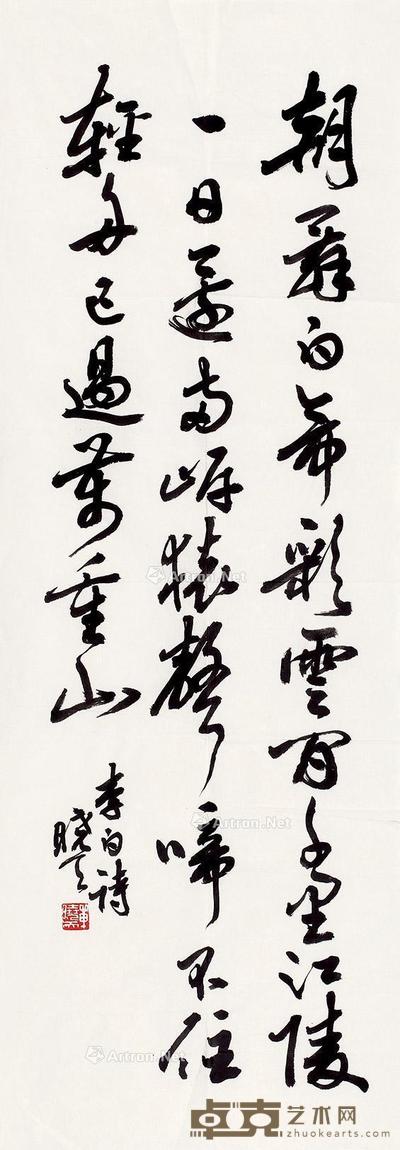 朝辭白帝彩雲間千里江陵
一日還兩岸猿聲啼不住
輕舟已過萬重山
李白詩
曉天
Artron.Net
Artron.Net
Artron.Net
卓克艺术网
zhuokearts.com